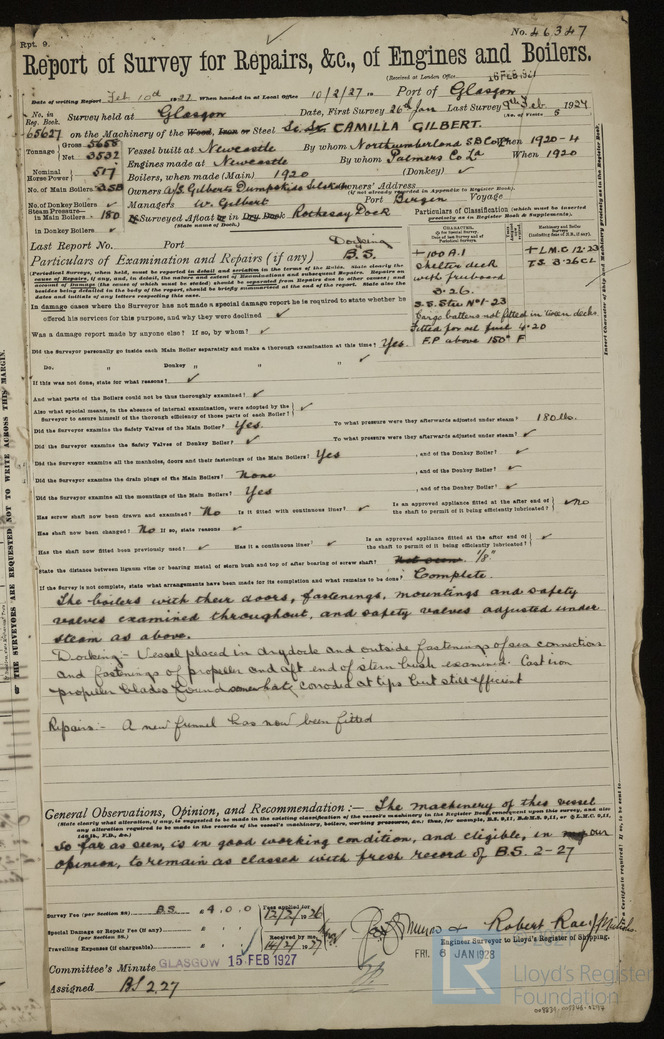 Rpt. 9.
No. 46347
Report of Survey for Repairs, &c., of Engines and Boilers.
(Received at London Office 16 FEB 1927
Date of writing Report Feb 10th 1927 When handed in at Local Office 10/2/27 Port of Glasgow
No. in Reg. Book. Survey held at Glasgow Date, First Survey 26th Jan Last Survey 9th Feb 1927
65627 on the Machinery of the Wood, Iron or Steel CAMILLA GILBERT.
Tonnage Gross 5658 Vessel built at Newcastle By whom Northumberland S B Co When 1920-4
Net 3532 Engines made at Newcastle By whom Palmers Co Ld When 1920
Nominal Horse Power 517 Boilers, when made (Main) 1920 (Donkey) ✓
No. of Main Boilers 3SB Owners A/S Gilberts Owners' Address
(if not already recorded in Appendix to Register Book).
No. of Donkey Boilers ✓ Managers W. Gilbert Port Bergen Voyage
Steam Pressure— in Main Boilers 180 Surveyed Afloat or in Dry Dock Rothesay Dock
(State name of Dock.)
in Donkey Boilers ✓
Particulars of Classification (which must be inserted precisely as in Register Book & Supplements).
Last Report No. Port
Particulars of Examination and Repairs (if any) Docking & B.S.
+100 A.1
Shelter deck
with freeboard
3.26
S.S. Stn No1-23
Cargo battens not fitted in tween decks
Fitted for oil fuel 4.20
F.P above 150° F
+L.M.C 12.23
T.S 3.26 CL
In damage cases where the Surveyor has not made a special damage report he is required to state whether he
offered his services for this purpose, and why they were declined ✓
Was a damage report made by anyone else? If so, by whom? ✓
Did the Surveyor personally go inside each Main Boiler separately and make a thorough examination at this time? Yes.
Do. " Donkey " " " ✓
If this was not done, state for what reasons? ✓
And what parts of the Boilers could not be thus thoroughly examined? ✓
Also what special means, in the absence of internal examination, were adopted by the
Surveyor to assure himself of the thorough efficiency of those parts of each Boiler? ✓
Did the Surveyor examine the Safety Valves of the Main Boiler? Yes. To what pressure were they afterwards adjusted under steam? 180 lbs.
Did the Surveyor examine the Safety Valves of Donkey Boiler? ✓ To what pressure were they afterwards adjusted under steam? ✓
Did the Surveyor examine all the manholes, doors and their fastenings of the Main Boilers? Yes , and of the Donkey Boiler? ✓
Did the Surveyor examine the drain plugs of the Main Boilers? None , and of the Donkey Boiler? ✓
Did the Surveyor examine all the mountings of the Main Boilers? Yes , and of the Donkey Boiler? ✓
Has screw shaft now been drawn and examined? No Is it fitted with continuous liner? ✓ Is an approved appliance fitted at the after end of the shaft to permit of it being efficiently lubricated? No
Has shaft now been changed? No If so, state reasons ✓
Has the shaft now fitted been previously used? ✓ Has it a continuous liner? ✓ Is an approved appliance fitted at the after end of the shaft to permit of it being efficiently lubricated? ✓
State the distance between lignum vitæ or bearing metal of stern bush and top of after bearing of screw shaft? Not seen. 1/8"
If the Survey is not complete, state what arrangements have been made for its completion and what remains to be done? Complete.
The boilers with their doors, fastenings, mountings and safety
valves examined throughout, and safety valves adjusted under
steam as above.
Docking - Vessel placed in drydock and outside fastenings of sea connections
and fastenings of propeller and aft end of stern bush examined. Cast iron
propeller blades found somewhat corroded at tips but still efficient
Repairs:- A new funnel has now been fitted
General Observations, Opinion, and Recommendation:— The machinery of this vessel
so far as seen, is in good working condition, and eligible, in my our
opinion, to remain as classed with fresh record of B.S. 2-27
Survey Fee (per Section 29) B.S. 4.0.0 Fees applied for 12/2/1926
Special Damage or Repair Fee (if any) (per Section 28).
Received by me, 14/2/1927
Travelling Expenses (if chargeable)
Munro & Robert Rae
Engineer Surveyor to Lloyd's Register of Shipping.
FRI. 6 JAN 1928
Committee's Minute GLASGOW 15 FEB 1927
Assigned BS 2.27
LR
Lloyd's Register
Foundation